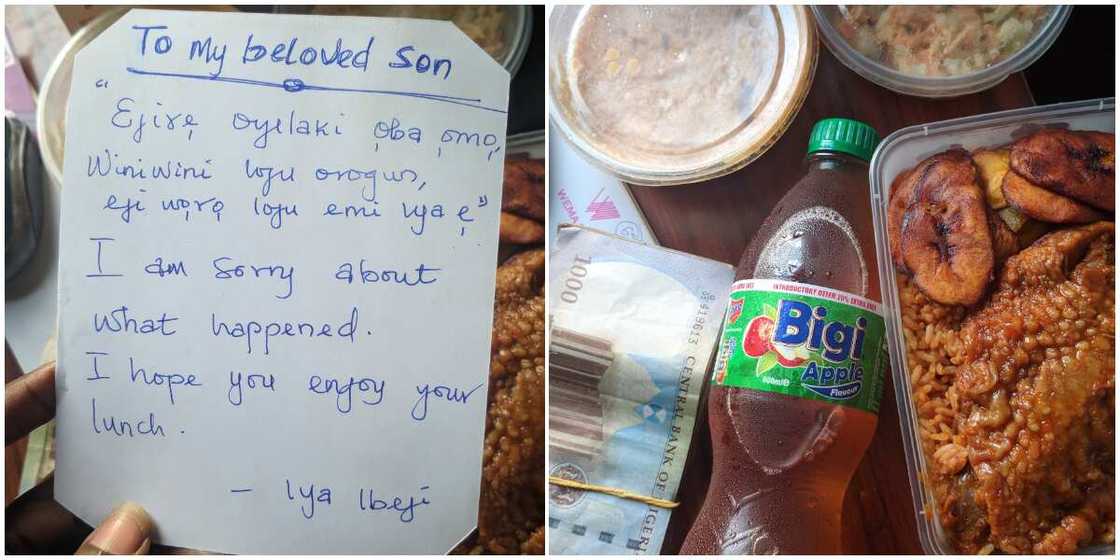 To my beloved son
"Ejirẹ oyelaki ọba ọmọ,
Winiwini loju orogun,
eji wọrọ loju emi iya ẹ"
I am sorry about
what happened.
I hope you enjoy your
lunch.
- Iya Ibeji
WEMA
1000
419613
CENTRAL BANK OF NIGERI
INTRODUCTORY OFFER 20% EXTRA FREE
Bigi
Apple
Flavour
600ml e